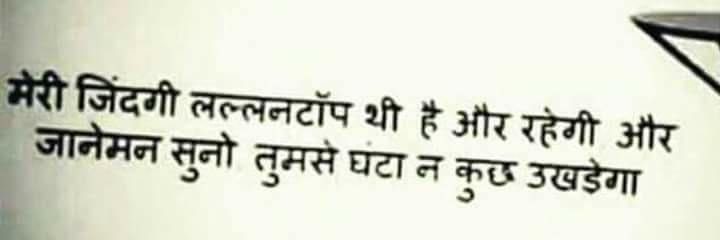 मेरी जिंदगी लल्लनटॉप थी है और रहेगी और
जानेमन सुनो तुमसे घंटा न कुछ उखडेगा